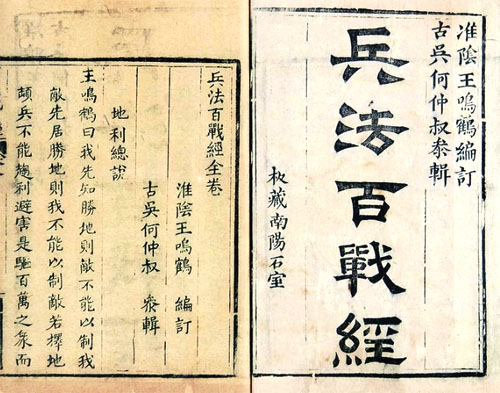 淮陰王鳴鶴編訂
古吳何仲叔叅輯
兵法百戰經
板藏南陽石室
兵法百戰經全卷
淮陰王鳴鶴 編訂
古吳何仲叔 叅輯
地利總說
王鳴鶴曰我先知勝地則敵不能以制我
敵先居勝地則我不能以制敵若擇地
頓兵不能趨利避害是驅百萬之衆而